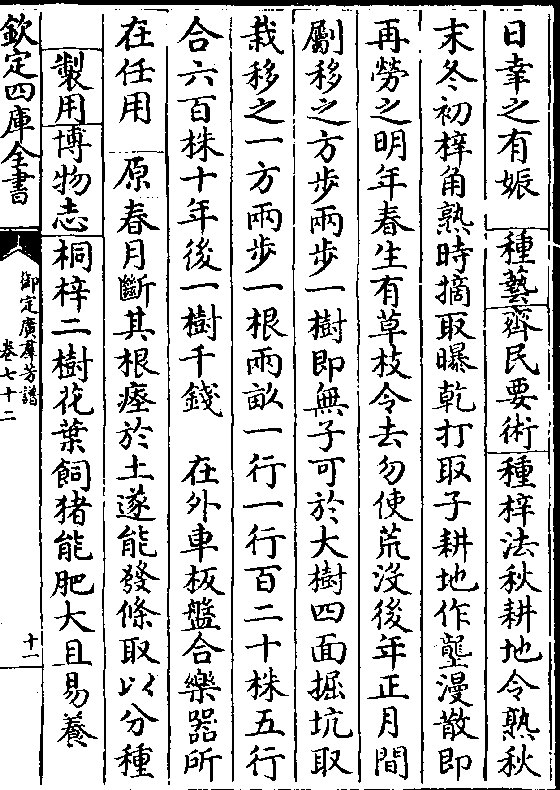 日幸之有娠　種藝齊民要術種梓法秋耕地令熟秋
末冬初梓角熟時摘取曝乾打取子耕地作壟漫散即
再勞之明年春生有草枝令去勿使荒沒後年正月間
劚移之方步兩步一樹即無子可於大樹四面掘坑取
栽移之一方兩步一根兩畝一行一行百二十株五行
合六百株十年後一樹千錢　在外車板盤合樂器所
在任用　原春月斷其根瘞於土遂能發條取以分種
製用博物志桐梓二樹花葉飼猪能肥大且易養
欽定四庫全書
御定廣羣芳譜
卷七十二
十一